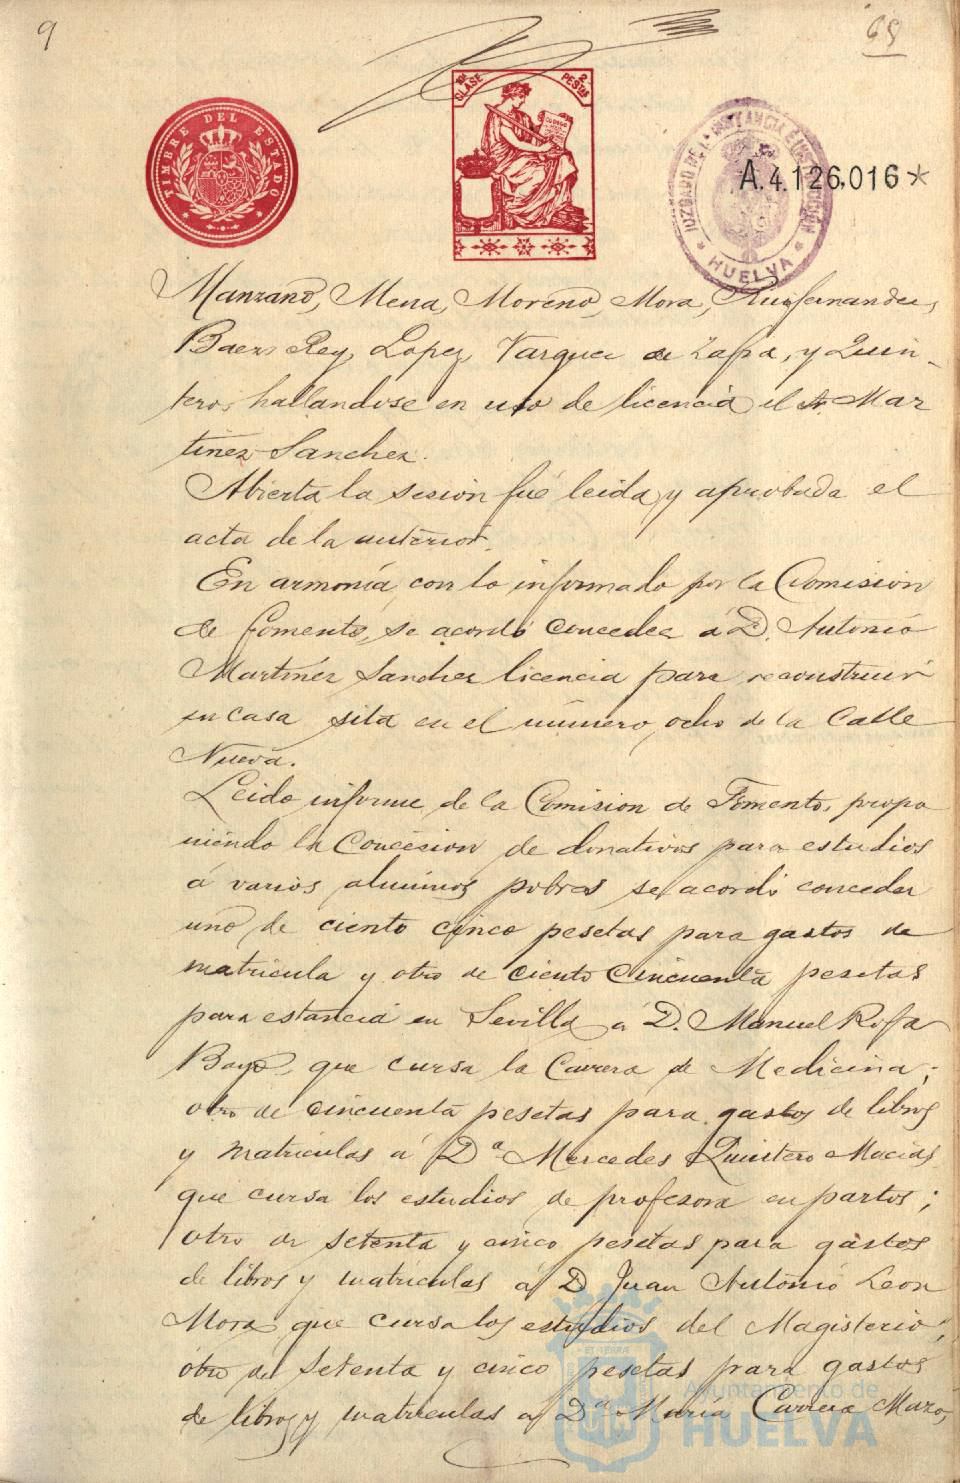 9
65
TIMBRE DEL ESTADO
10ª CLASE
2 PESETAS
JUZGADO DE 1ª INSTANCIA É INSTRUCCIÓN
HUELVA
A.4.126,016*
Manzano, Mena, Moreno, Mora, Ruifernandez,
Baez Rey, Lopez, Vazquez de Zafra, y Quin-
tero, hallandose en uso de licencia el Sr. Mar
tinez Sanchez.
Abierta la sesion fué leida y aprobada el
acta de la anterior.
En armonía con lo informado por la Comision
de fomento, se acordó conceder á D. Antonio
Martinez Sanchez licencia para reconstruir
su casa sita en el número ocho de la Calle
Nueva.
Leido informe de la Comision de Fomento, propo
niendo la concesion de donativos para estudios
á varios alumnos pobres se acordó conceder
uno de ciento cinco pesetas para gastos de
matricula y otro de ciento cincuenta pesetas
para estancia en Sevilla á D. Manuel Rofa
Bayo, que cursa la Carrera de Medicina;
otro de cincuenta pesetas para gastos de libros
y matriculas á Dª Mercedes Quintero Macias
que cursa los estudios de profesora en partos;
otro de setenta y cinco pesetas para gastos
de libros y matriculas á D Juan Antonio Leon
Mora que cursa los estudios del Magisterio;
otro de setenta y cinco pesetas para gastos
de libros y matriculas a Dª María Carrera Mazo,
Ayuntamiento de
HUELVA